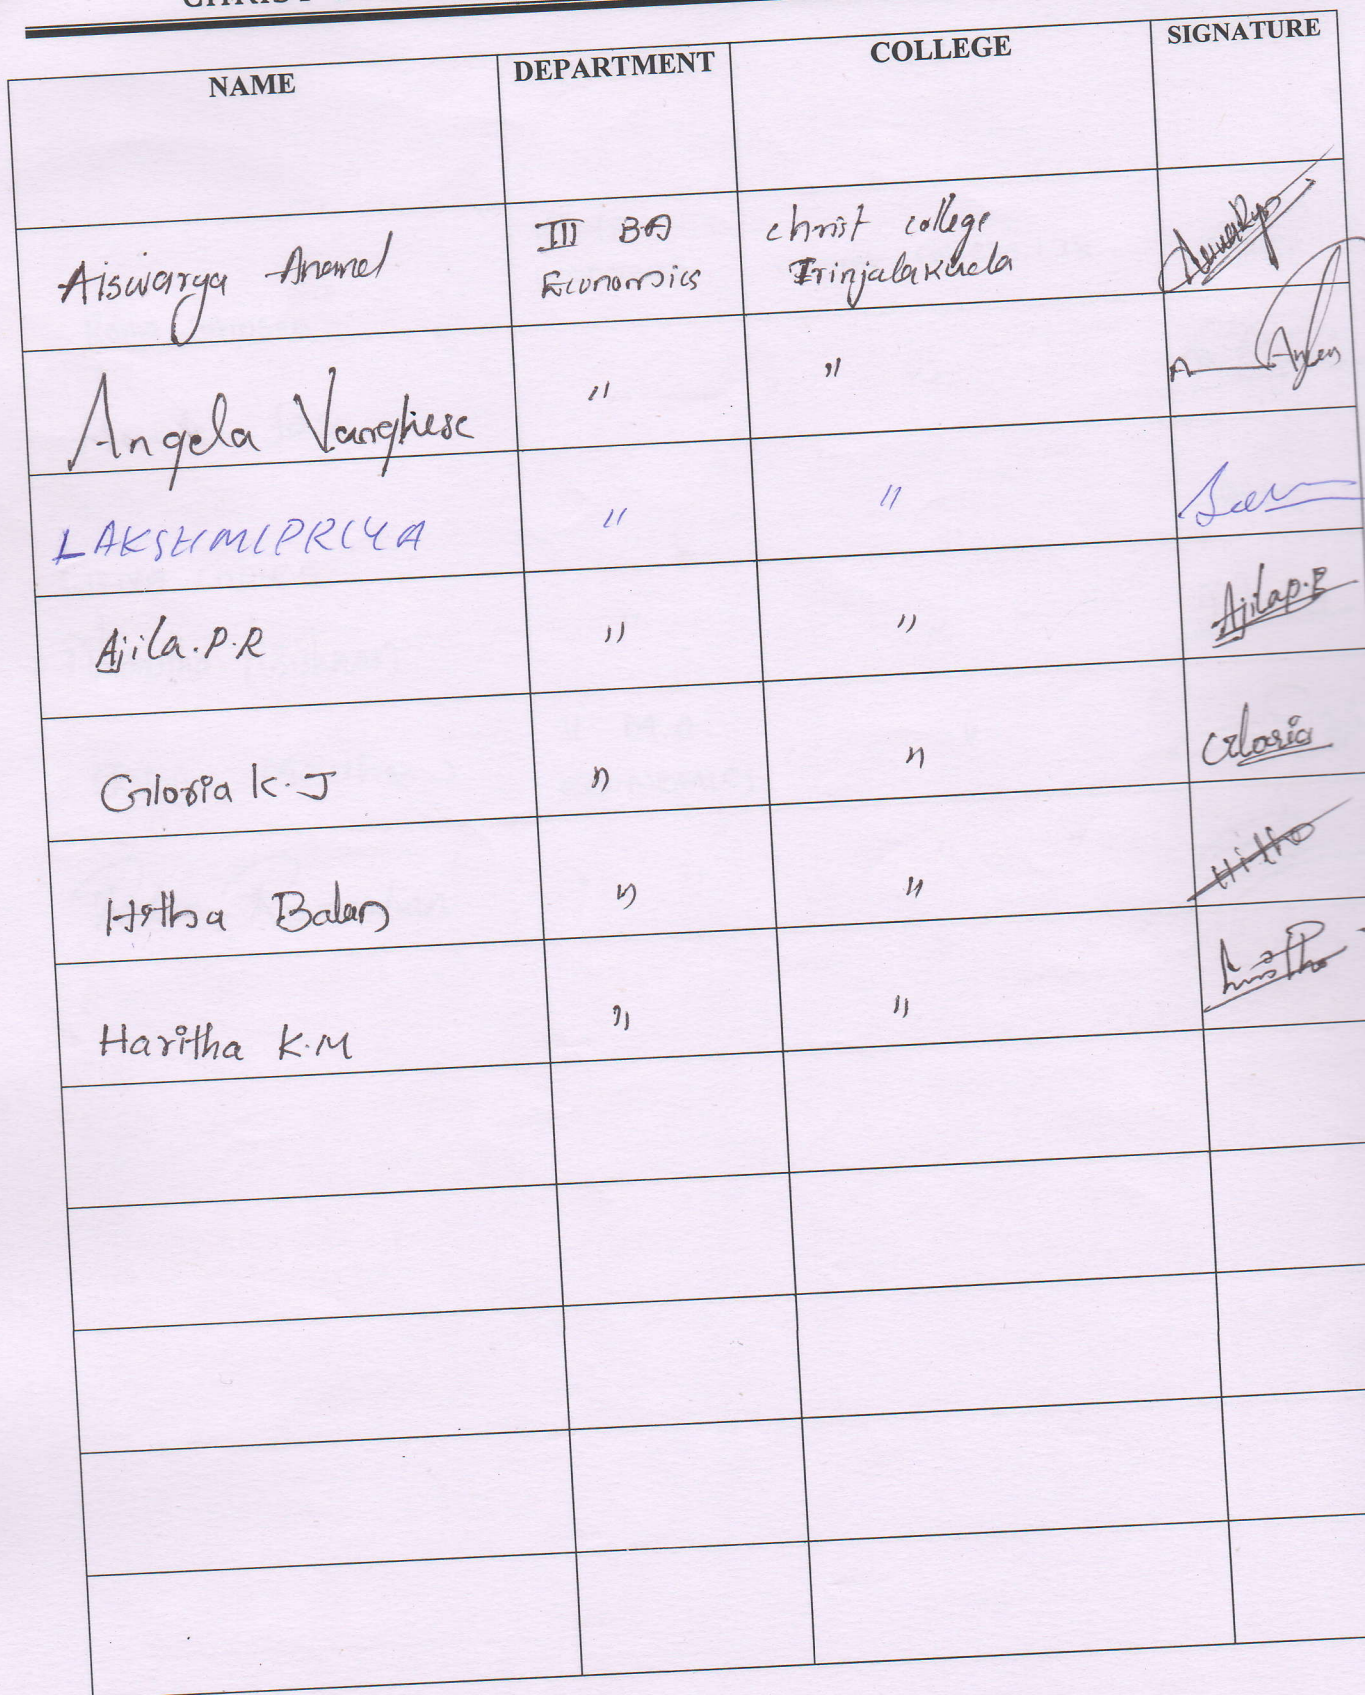 NAME DEPARTMENT COLLEGE SIGNATURE
Aiswarya Anand III BA Economics Christ College Irinjalakuda
Angela Varghese " "
LAKSHMIPRIYA " "
Ajila.P.R " " Ajila P.R
Gloria K.J " " Gloria
Hitha Balan " " Hitha
Haritha K.M " "